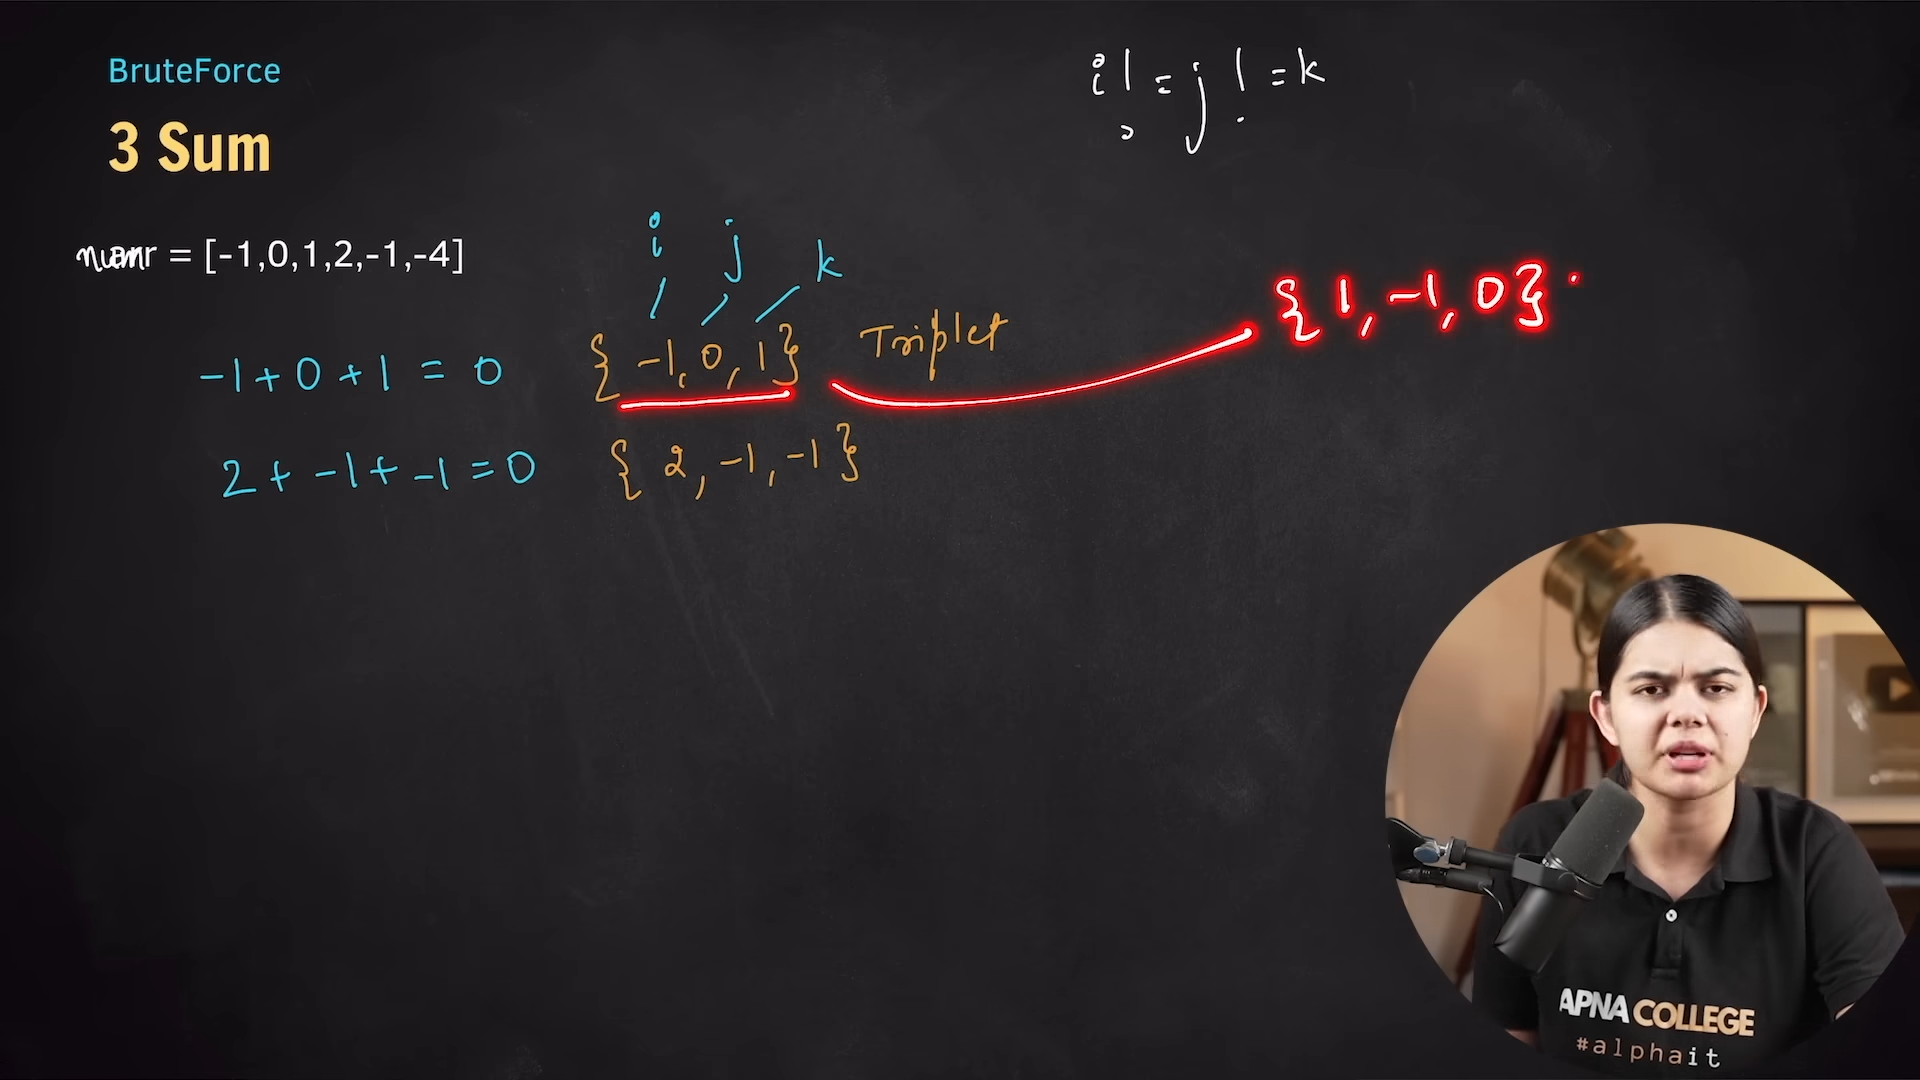 BruteForce
i != j != k
3 Sum
i j k
= [-1,0,1,2,-1,-4]
{1, -1, 0}
-1 + 0 + 1 = 0 { -1, 0, 1 } Triplet
2 + -1 + -1 = 0 { 2, -1, -1 }
APNA COLLEGE
#alphait